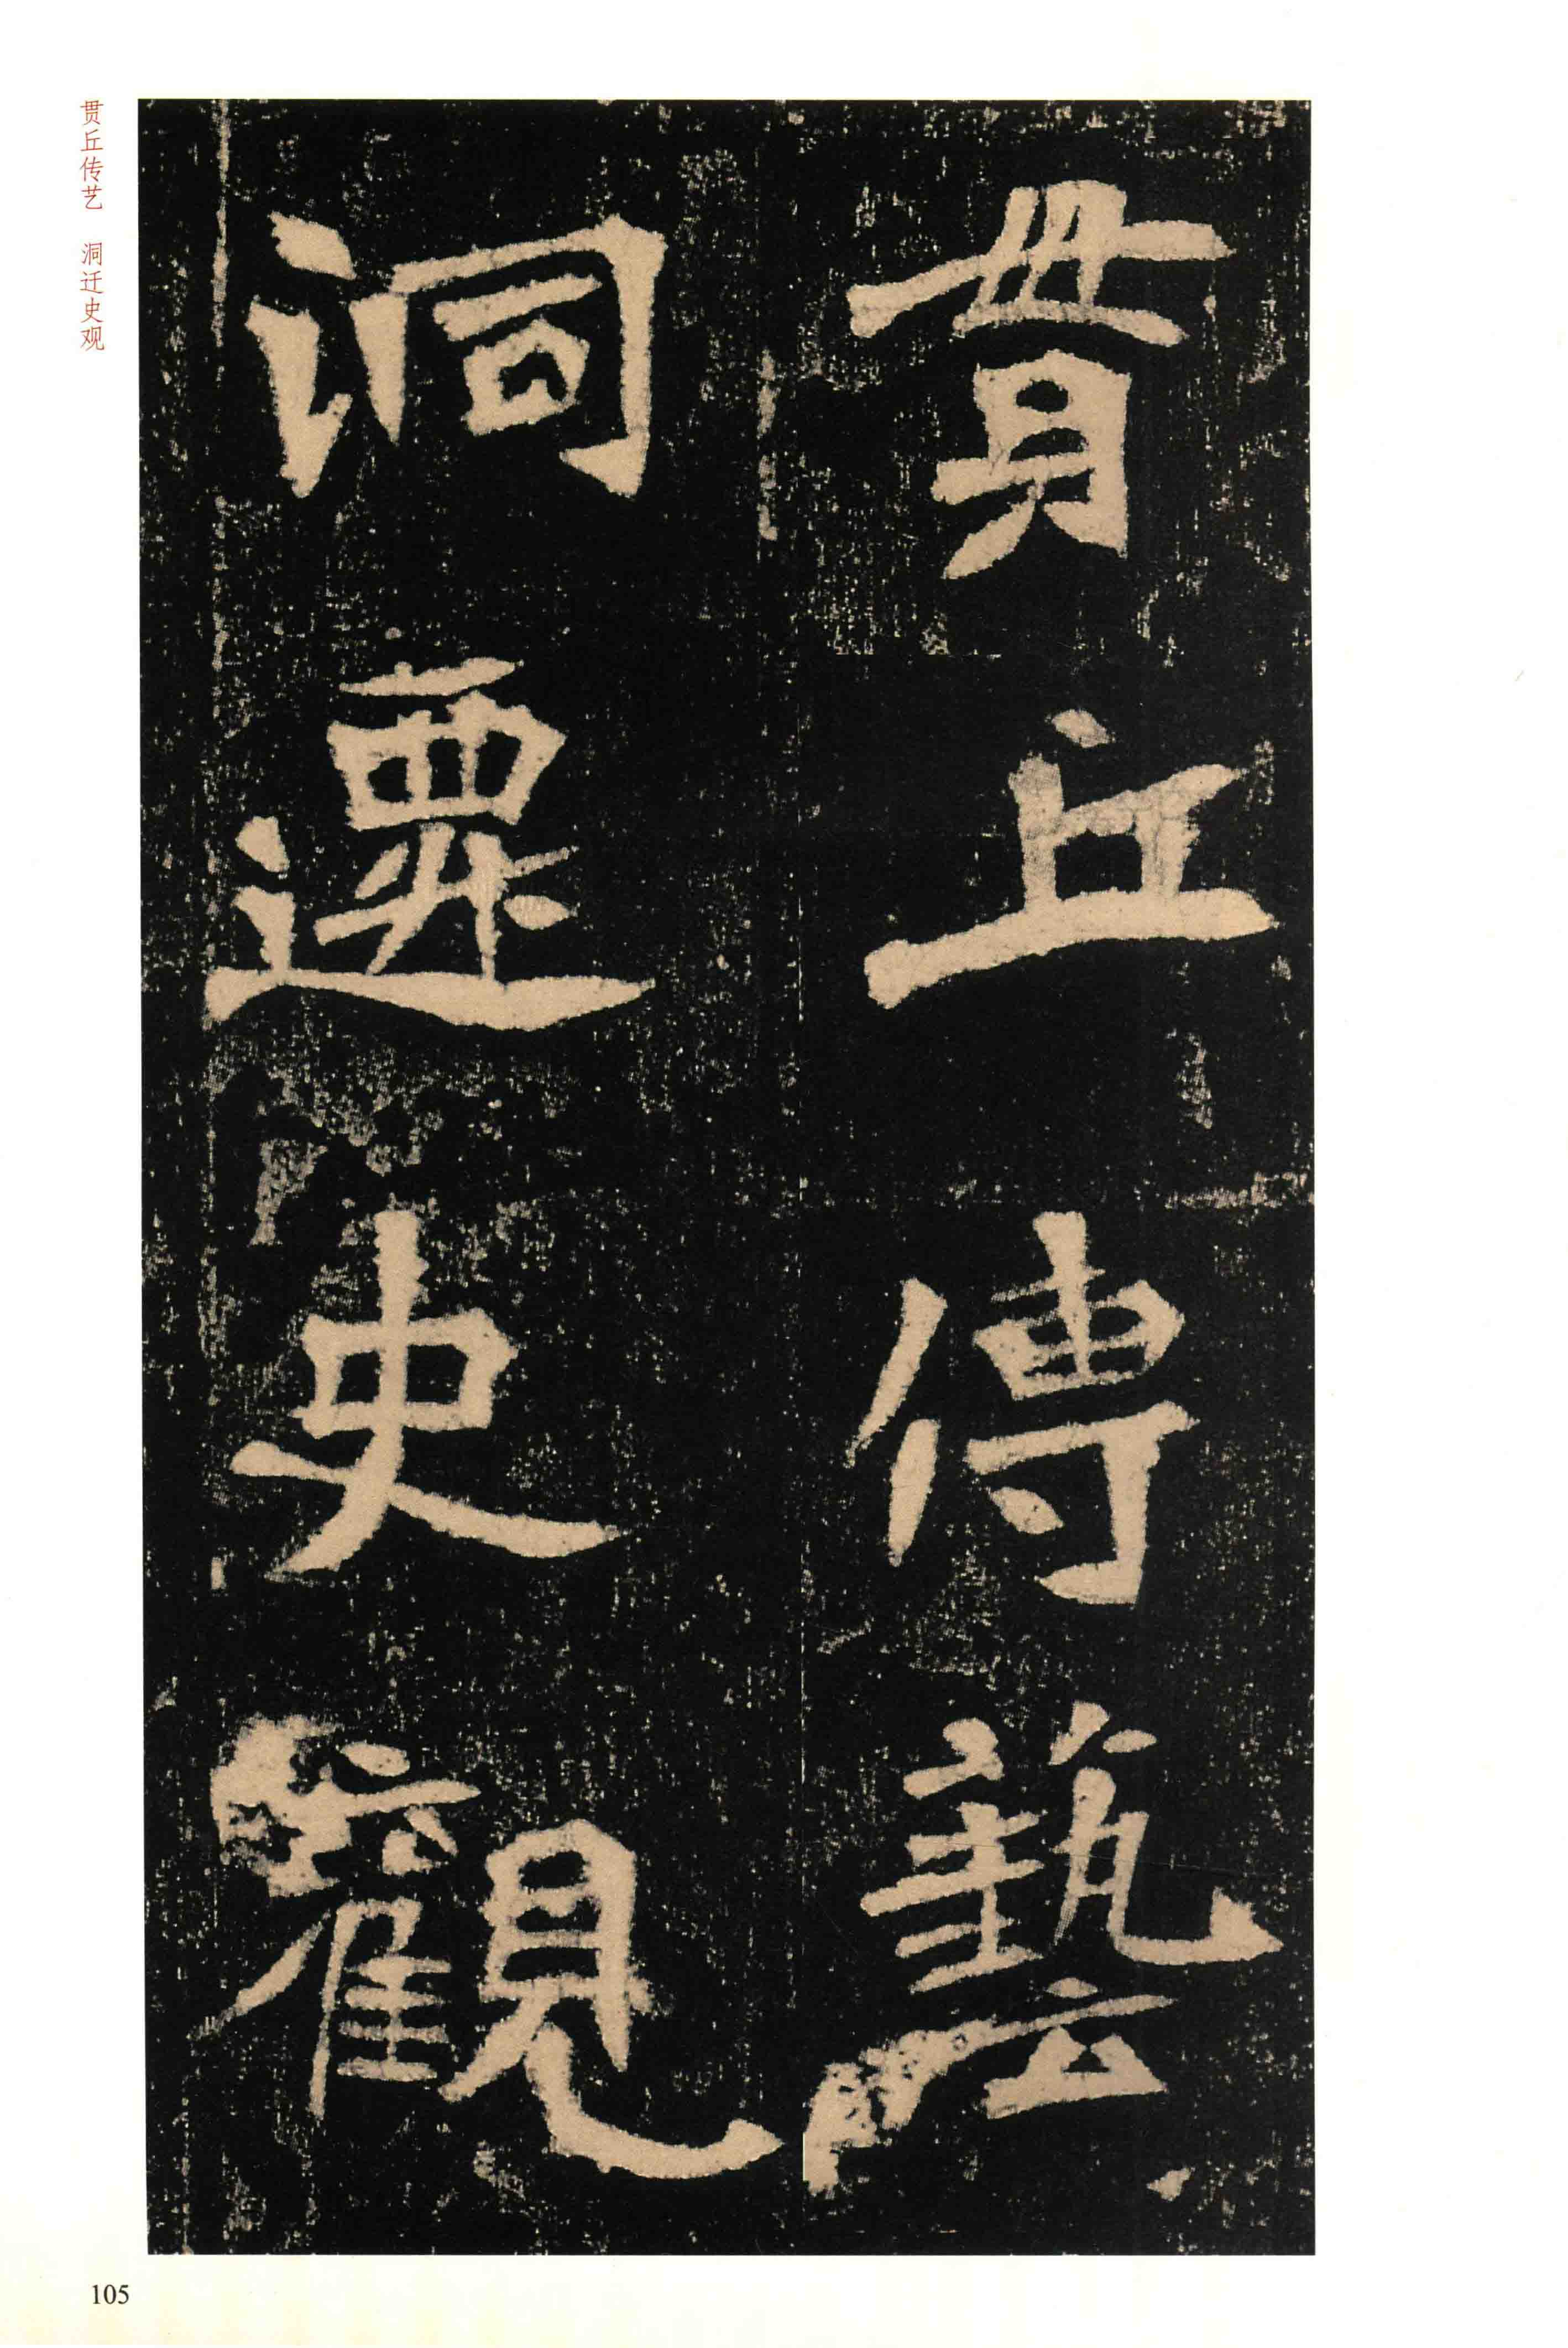 貫丘傳藝
洞遷史觀
贯丘传艺 洞迁史观
105